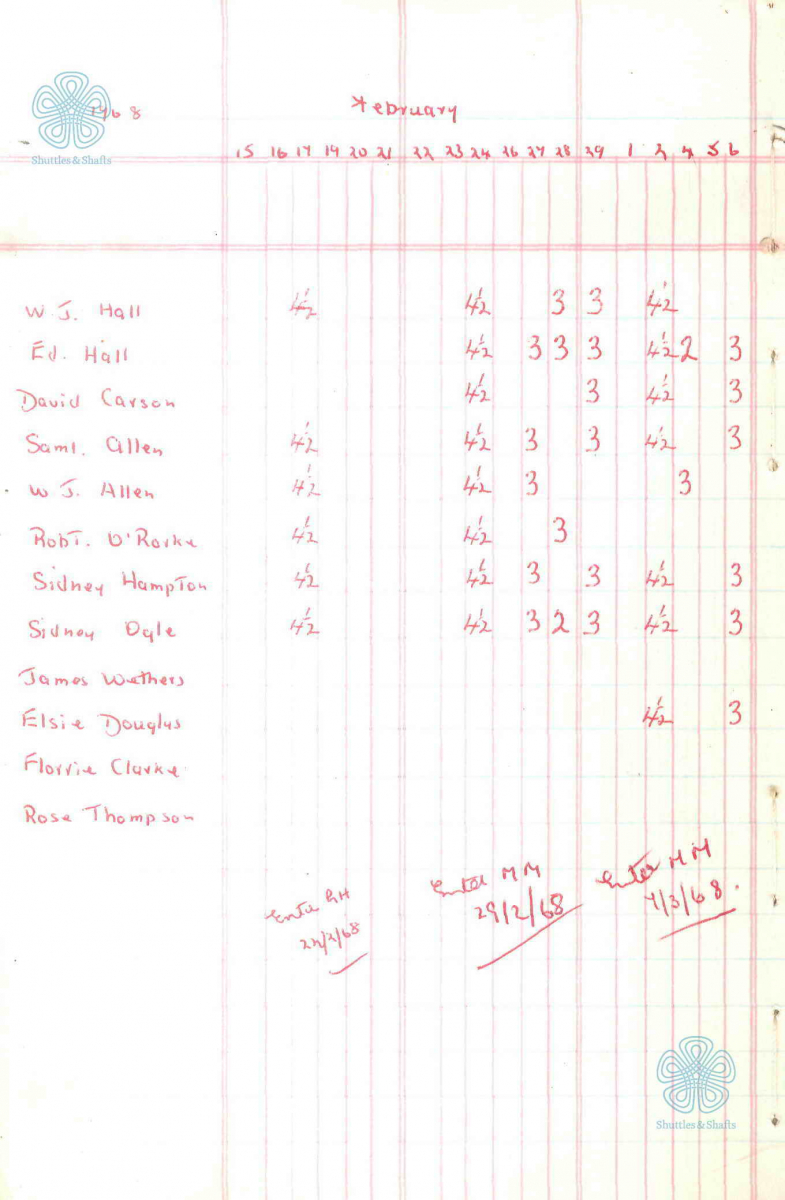 1968 February
15 16 17 19 20 21 22 23 24 26 27 28 29 1 2 4 5 6
W. J. Hall 4½ 4½ 3 3 4½
Ed. Hall 4½ 3 3 3 4½ 2 3
David Carson 4½ 3 4½ 3
Saml. Allen 4½ 4½ 3 3 4½ 3
W J. Allen 4½ 4½ 3 3
Robt. O'Rorke 4½ 4½ 3
Sidney Hampton 4½ 4½ 3 3 4½ 3
Sidney Ogle 4½ 4½ 3 2 3 4½ 3
James Wethers
Elsie Douglas 4½ 3
Florrie Clarke
Rose Thompson
Enter MM
29/2/68
Enter MM
7/3/68.
Shuttles & Shafts
Shuttles & Shafts